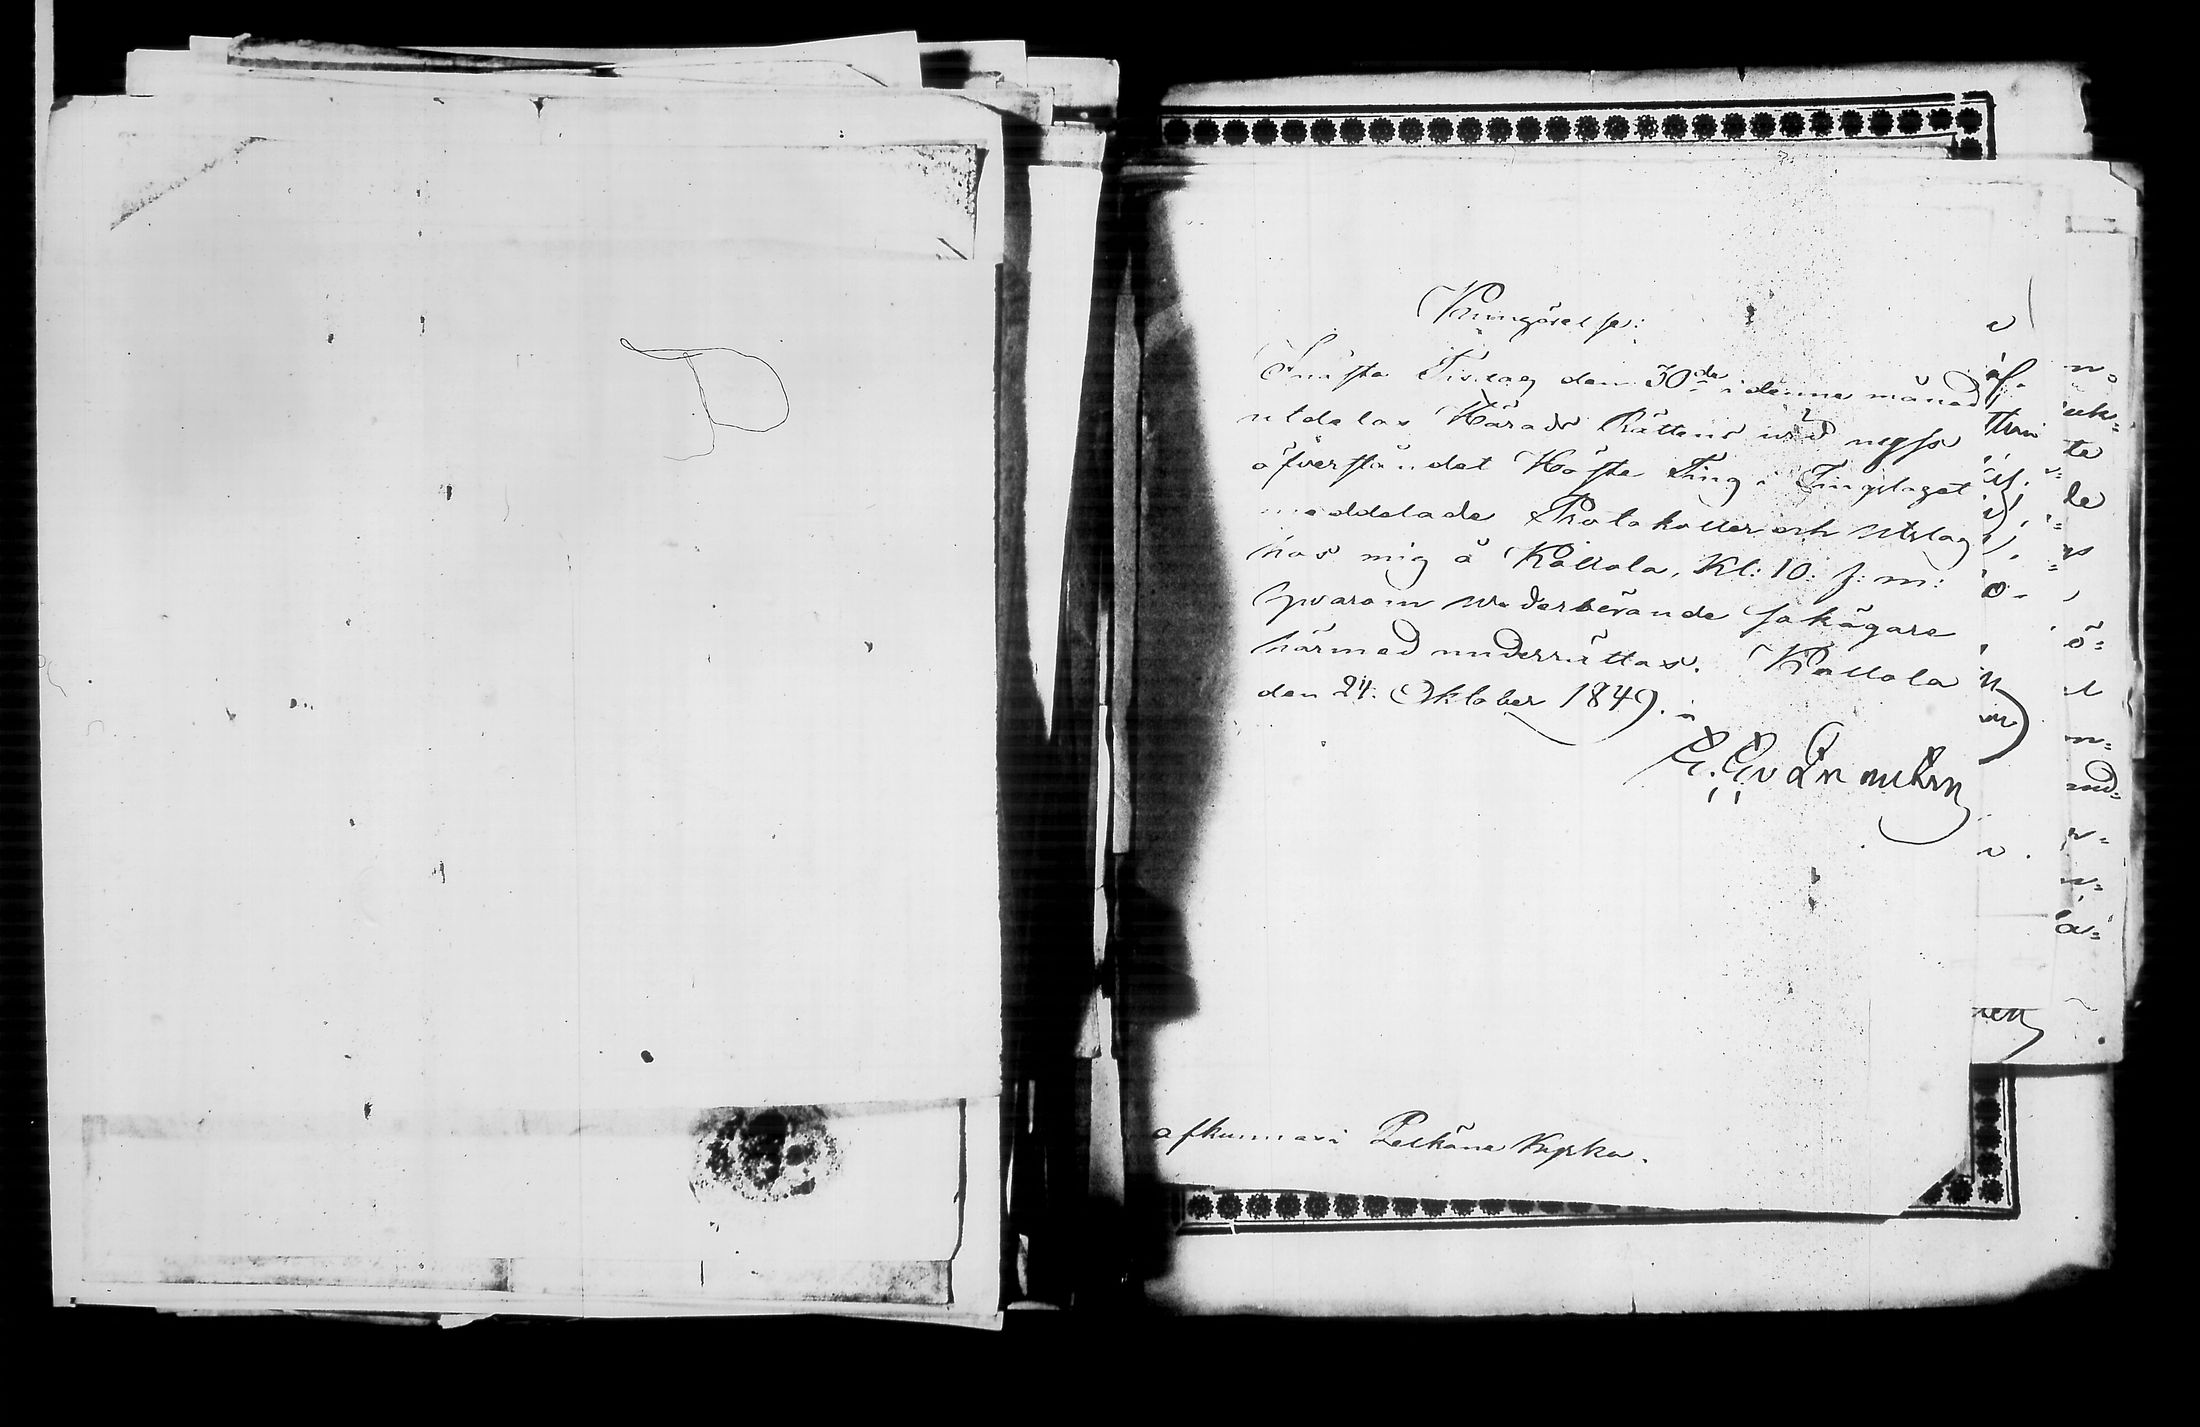 Kungörelse:
Nästa Tisdag den 30de i denne månad
utdelas Härads Rättens wid nyss
öfverståndet Höste Ting i Tingslaget
meddelade Protokoller och Utslag
hos mig å Kollola, Kl: 10: f: m:
hvarom wederbörande sakägare
härmed underrättas. Kollola
den 24. Oktober 1849.
afkunnas i Pelkäne Kyrka.